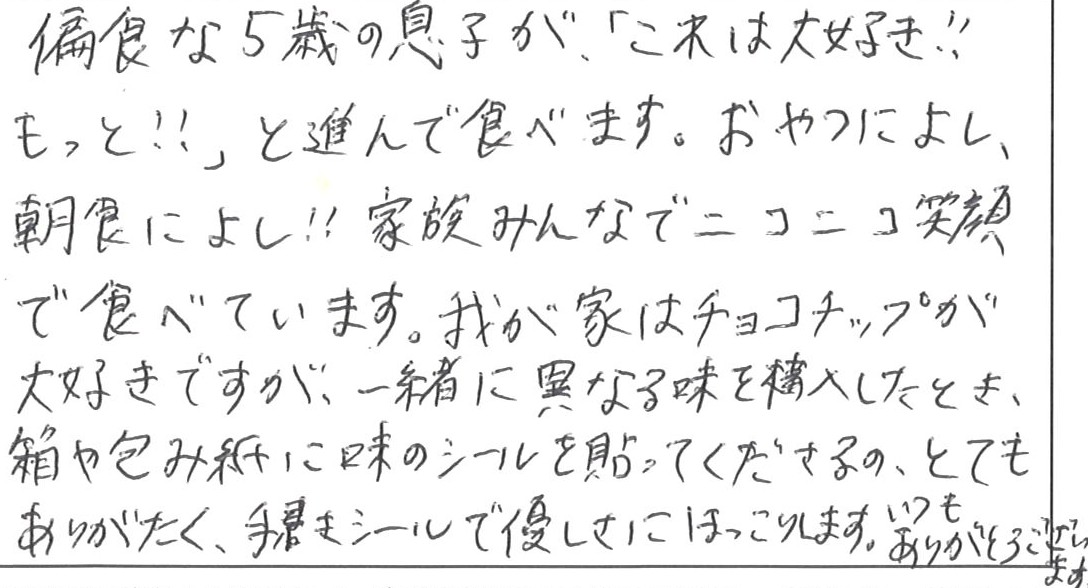 偏食な5歳の息子が、「これは大好き!!
もっと!!」と進んで食べます。おやつによし、
朝食によし!!家族みんなでニコニコ笑顔
で食べています。我が家はチョコチップが
大好きですが、一緒に異なる味を購入したとき、
箱や包み紙に味のシールを貼ってくださるの、とても
ありがたく、手書きシールで優しさにほっこりします。いつも
ありがとうござい
ます